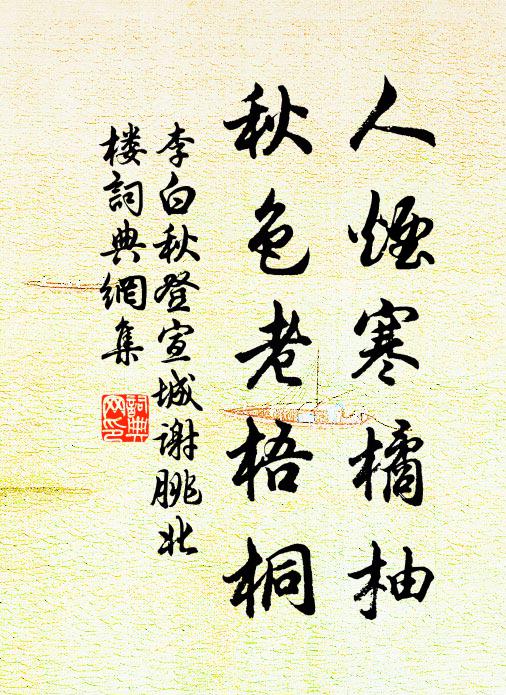 人煙寒橘柚
秋色老梧桐
李白秋登宣城谢朓北
楼詞典網集
詞典
网印